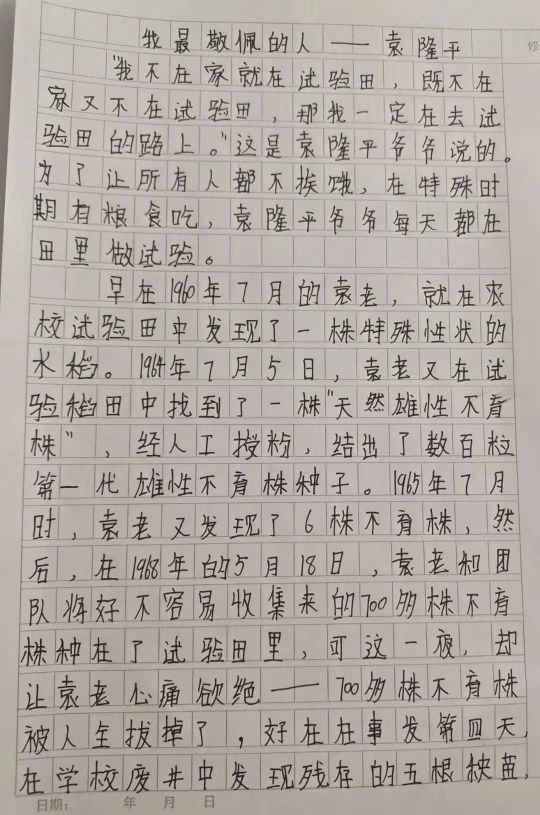 我最敬佩的人——袁隆平
"我不在家就在试验田，既不在
家又不在试验田，那我一定在去试
验田的路上。"这是袁隆平爷爷说的。
为了让所有人都不挨饿，在特殊时
期有粮食吃，袁隆平爷爷每天都在
田里做试验。
早在1960年7月的袁老，就在农
校试验田中发现了一株特殊性状的
水稻。1964年7月5日，袁老又在试
验稻田中找到了一株"天然雄性不育
株"，经人工授粉，结出了数百粒
第一代雄性不育株种子。1965年7月
时，袁老又发现了6株不育株，然
后，在1968年的5月18日，袁老和团
队将好不容易收集来的700多株不育
株种在了试验田里，可这一夜，却
让袁老心痛欲绝——700多株不育株
被人全拔掉了，好在在事发第四天，
在学校废井中发现残存的五根秧苗，
日期： 年 月 日
修